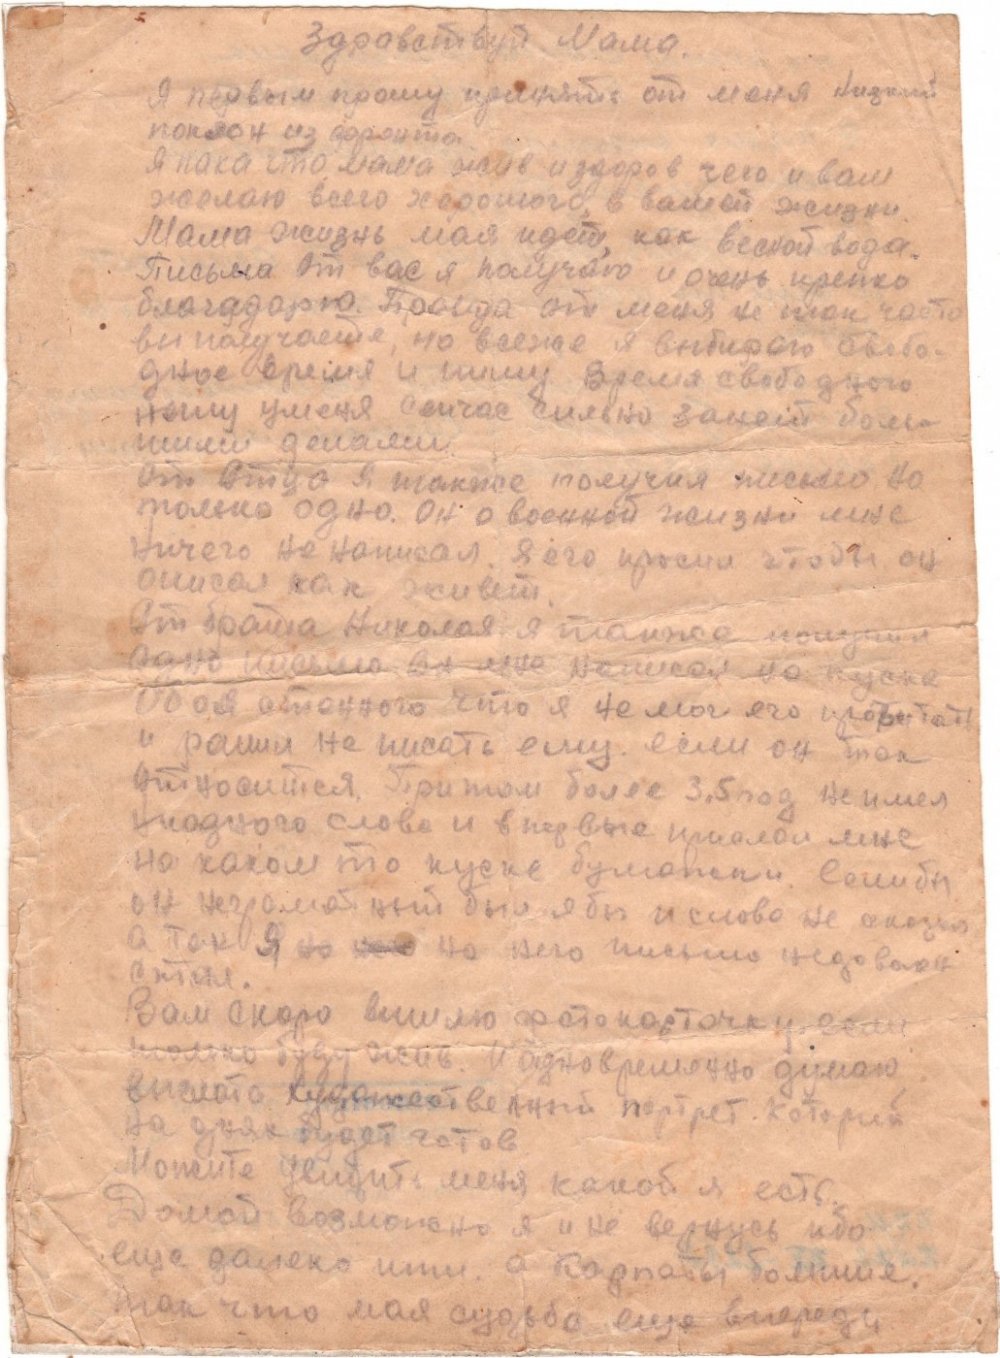 Здравствуй Мама.
Я первым прошу принять от меня низкий
поклон из фронта.
Я пака что мама жив и здоров чего и вам
желаю всего хорошого, в вашей жизни.
Мама жизнь мая идет, как весной вода.
Письма от вас я получаю и очень крепко
благадарю. Правда от меня не так часто
вы получаете, но всеже я выбираю свобо-
дное время и пишу. Время свободного
уменя сейчас сильно занет боль-
шими делами.
От Отца я также получил письмо но
только одно. Он о военной жизни мне
ничего не написал. Я его просил чтобы он
описал как живет.
От брата Николая я также получил
одно письмо он мне написал на куске
что я не мог его прочитать
и рашил не писать ему. если он так
относится. Притом более 3,5 год не имел
ниодного слова и впервые прислал мне
на каком то куске бумашки. Еслибы
он неграматный был ябы и слова не сказал
а так я на него на него письмо недовольн
Вам скоро вышлю фотокарточку если
только буду жив. И одновременно думаю
выслать художественный портрет. который
на днях будет готов
Можите увидить меня какой я есть.
Домой возможно я и не вернусь ибо
еще далеко ити. а Карпаты болшие.
Так что мая судьба еще впереди